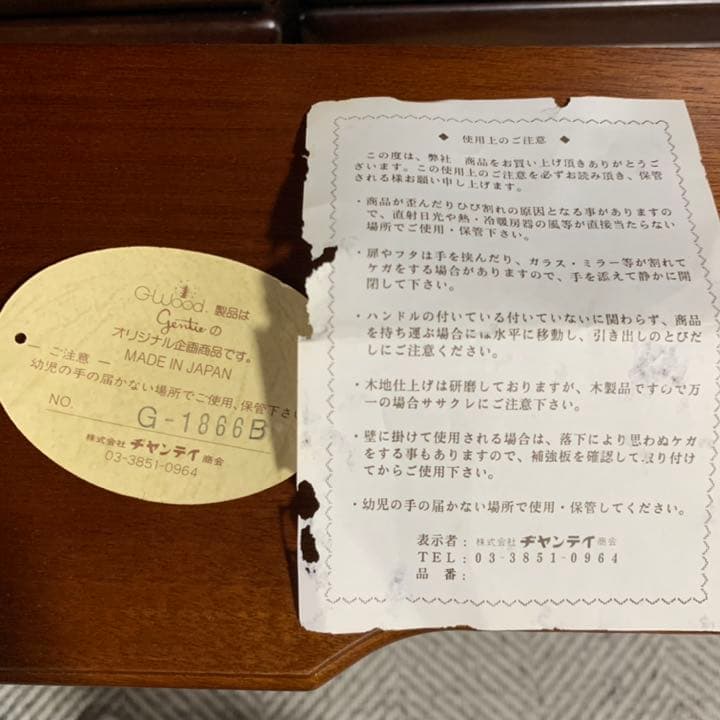 G-Wood 製品は
Gentie の
オリジナル企画商品です。
MADE IN JAPAN
— ご注意 —
幼児の手の届かない場所でご使用、保管下さい
NO. G-1866B
株式会社 チャンテイ 商会
03-3851-0964
◆ 使用上のご注意 ◆
この度は、弊社 商品をお買い上げ頂きありがとうご
ざいます。この使用上のご注意を必ずお読み頂き、保管
される様お願い申し上げます。
・商品が歪んだりひび割れの原因となる事がありますの
で、直射日光や熱・冷暖房器の風等が直接当たらない
場所でご使用・保管下さい。
・扉やフタは手を挟んだり、ガラス・ミラー等が割れて
ケガをする場合がありますので、手を添えて静かに開
閉して下さい。
・ハンドルの付いている付いていないに関わらず、商品
を持ち運ぶ場合には水平に移動し、引き出しのとびだ
しにご注意ください。
・木地仕上げは研磨しておりますが、木製品ですので万
一の場合ササクレにご注意下さい。
・壁に掛けて使用される場合は、落下により思わぬケガ
をする事もありますので、補強板を確認して取り付け
てからご使用下さい。
・幼児の手の届かない場所で使用・保管してください。
表示者：株式会社 チャンテイ 商会
TEL：03-3851-0964
品 番：